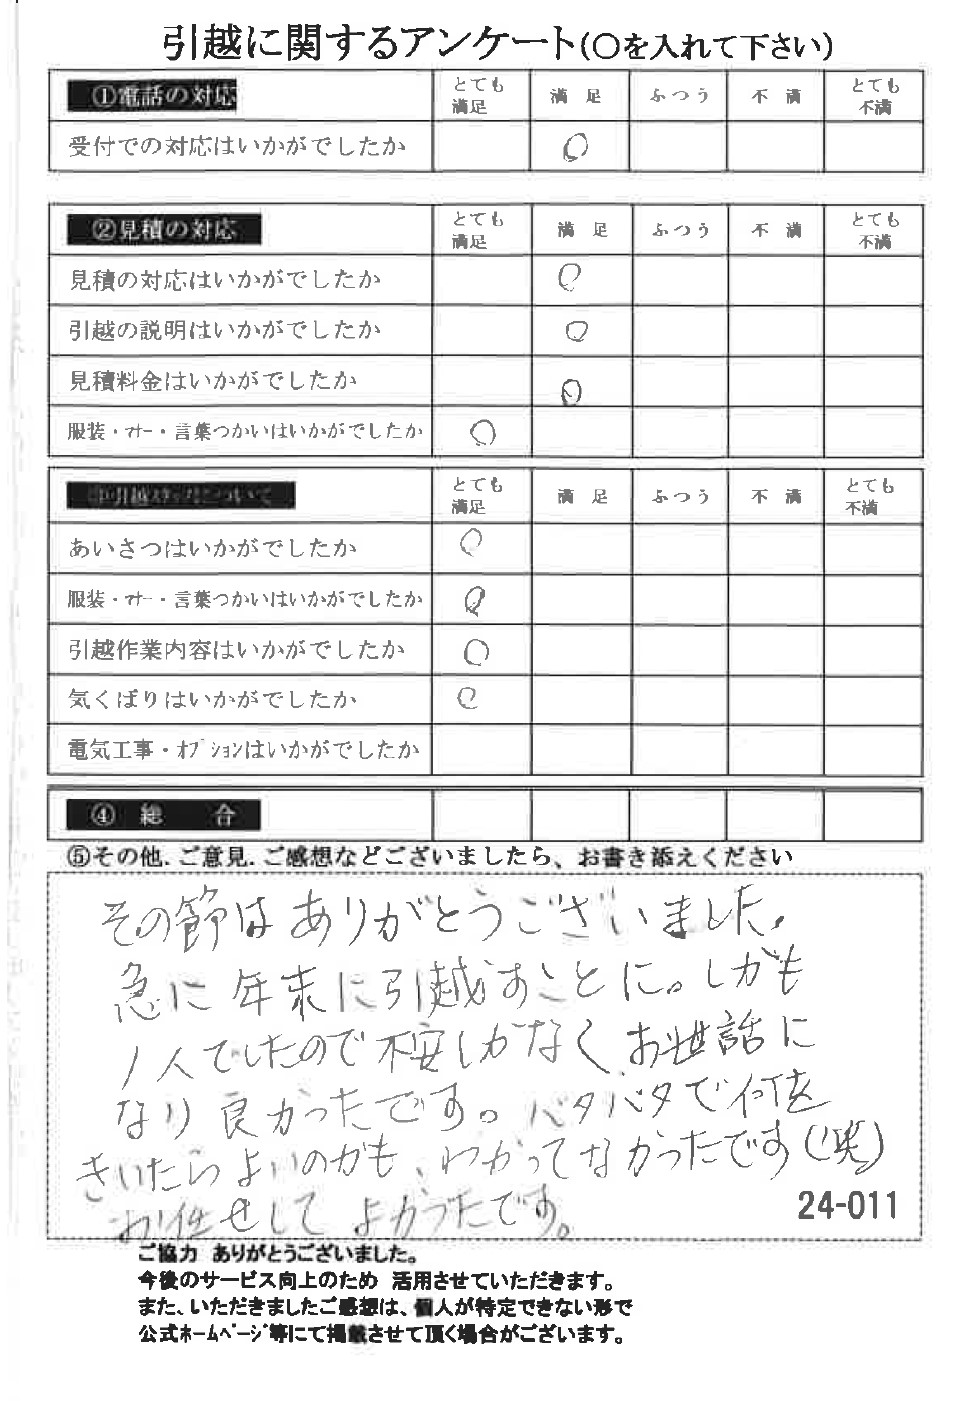 引越に関するアンケート(〇を入れて下さい)
①電話の対応 とても満足 満足 ふつう 不満 とても不満
受付での対応はいかがでしたか 〇
②見積の対応 とても満足 満足 ふつう 不満 とても不満
見積の対応はいかがでしたか 〇
引越の説明はいかがでしたか 〇
見積料金はいかがでしたか 〇
服装・マナー・言葉つかいはいかがでしたか 〇
③引越スタッフについて とても満足 満足 ふつう 不満 とても不満
あいさつはいかがでしたか 〇
服装・マナー・言葉つかいはいかがでしたか 〇
引越作業内容はいかがでしたか 〇
気くばりはいかがでしたか 〇
電気工事・オプションはいかがでしたか
④ 総 合
⑤その他.ご意見.ご感想などございましたら、お書き添えください
その節はありがとうございました。
急に年末に引越すことに。しかも
1人でしたので不安しかなく お世話に
なり 良かったです。バタバタで何を
きいたらよいのかも、わかってなかったです(笑)
お任せして よかったです。
24-011
ご協力 ありがとうございました。
今後のサービス向上のため 活用させていただきます。
また、いただきましたご感想は、個人が特定できない形で
公式ホームページ等にて掲載させて頂く場合がございます。